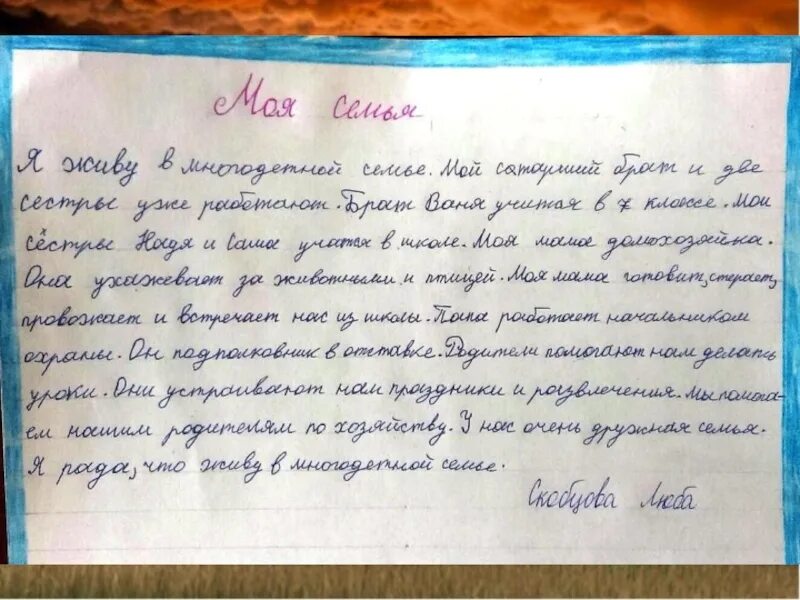 Моя семья
Я живу в многодетной семье. Мой сатарший брат и две
сестры уже работают. Брат Ваня учится в 7 классе. Мои
сёстры Надя и Саша учатся в школе. Моя мама домохозяйка.
Она ухажевает за животными и птицей. Моя мама готовит, стерает,
провожает и встречает нас из школы. Папа работает начальником
охраны. Он подполковник в отставке. Родители помогают нам делать
уроки. Они устраивают нам праздники и развлечения. Мы помога-
ем нашим родителям по хозяйству. У нас очень дружная семья.
Я рада, что живу в многодетной семье.
Скобцова Люба